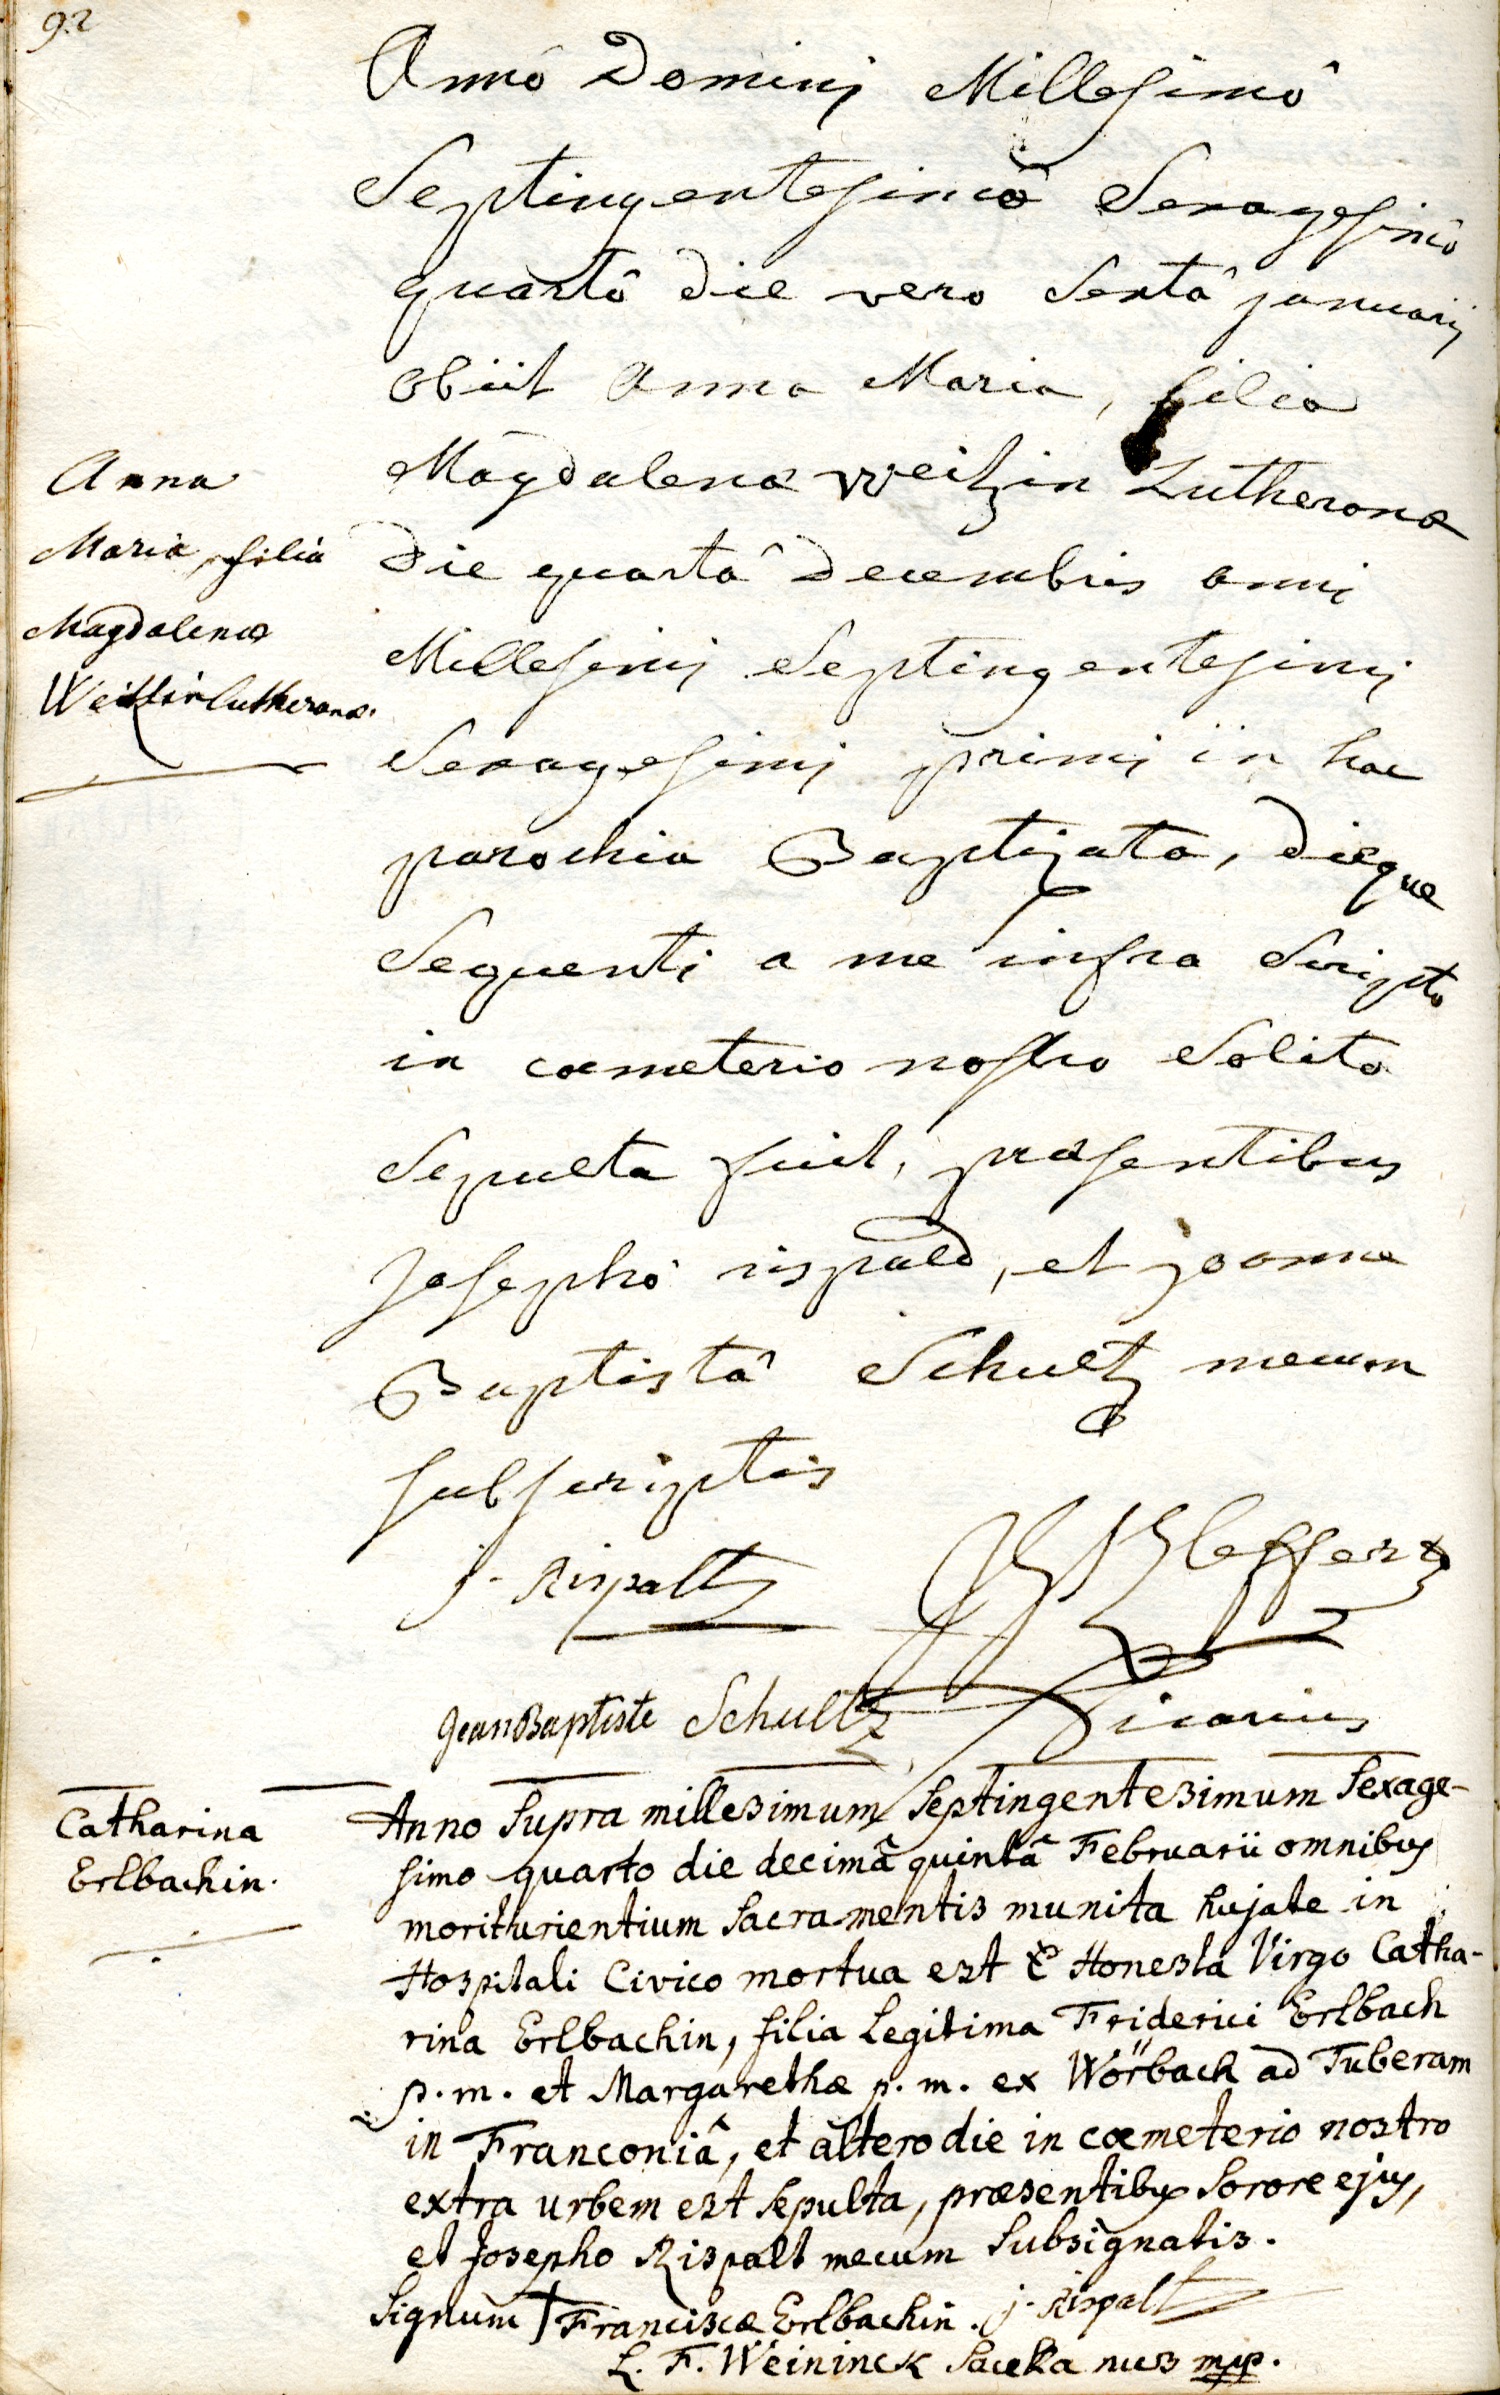 92
Annô Dominj Millesimô
Septingentesimô Sexagesimô
quartô die vero Sextâ januarij
obiit Anna Maria, filia
Magdalenæ weitzin Lutheranæ
die quartâ decembris anni
Millesimj Septingentesimj
Sexagesimj primj in hac
parochia Baptizata, dieque
Sequenti a me infra Scripto
in coemeterio nostro Solito
Sepulta fuit, præsentibus
Josephô rispald, et joanne
Baptistâ Schultz mecum
subscriptis
j. Rispalt
Jean Baptiste Schultz
Vicarius
Anna
Maria, filia
Magdalenæ
Weitzin lutheranæ.
Catharina
Erlbachin.
Anno supra millesimum septingentesimum sexage-
simo quarto die decimâ quintâ Februarii omnibus
moriturientium sacramentis munita hujate in
Hospitali Civico mortua est Honesta Virgo Catha-
rina Erlbachin, filia Legitima Friderici Erlbach
p. m. et Margarethæ p. m. ex Wörbach ad Tuberam
in Franconiâ, et altero die in coemeterio nostro
extra urbem est sepulta, præsentibus sorore ejus,
et Josepho Rispalt mecum subsignatis.
Signum † Franciscæ Erlbachin. j. Rispalt
L. F. Weininck Sacellanus mpp.